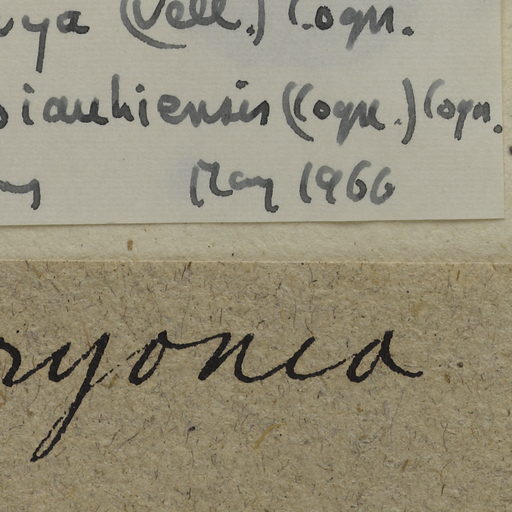 uya (Vell.) Cogn.
piauhiensis (Cogn.) Cogn.
May 1966
ryonia